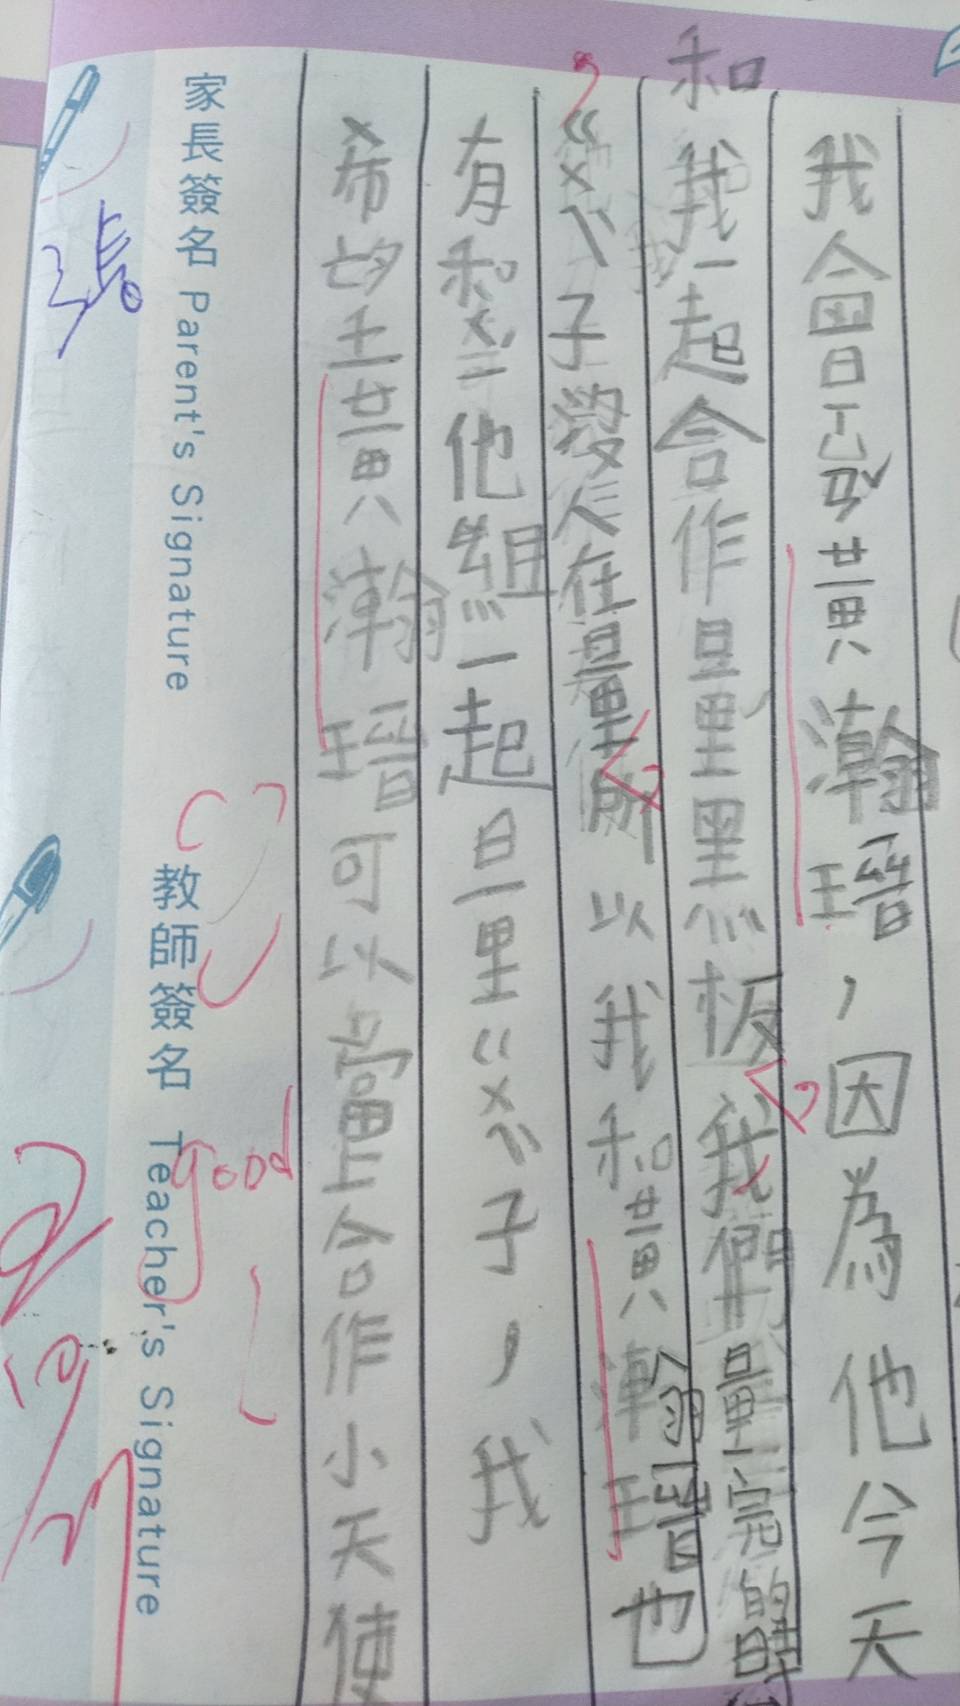 我會選黃瀚瑨，因為他今天
和我一起合作量黑板我們量完的時
ㄍㄨㄟ子發人在量所以我和黃瀚瑨也
有和他組一起量ㄍㄨㄟ子，我
希望黃瀚瑨可以當合作小天使
家長簽名 Parent's Signature
教師簽名 Teacher's Signature
good